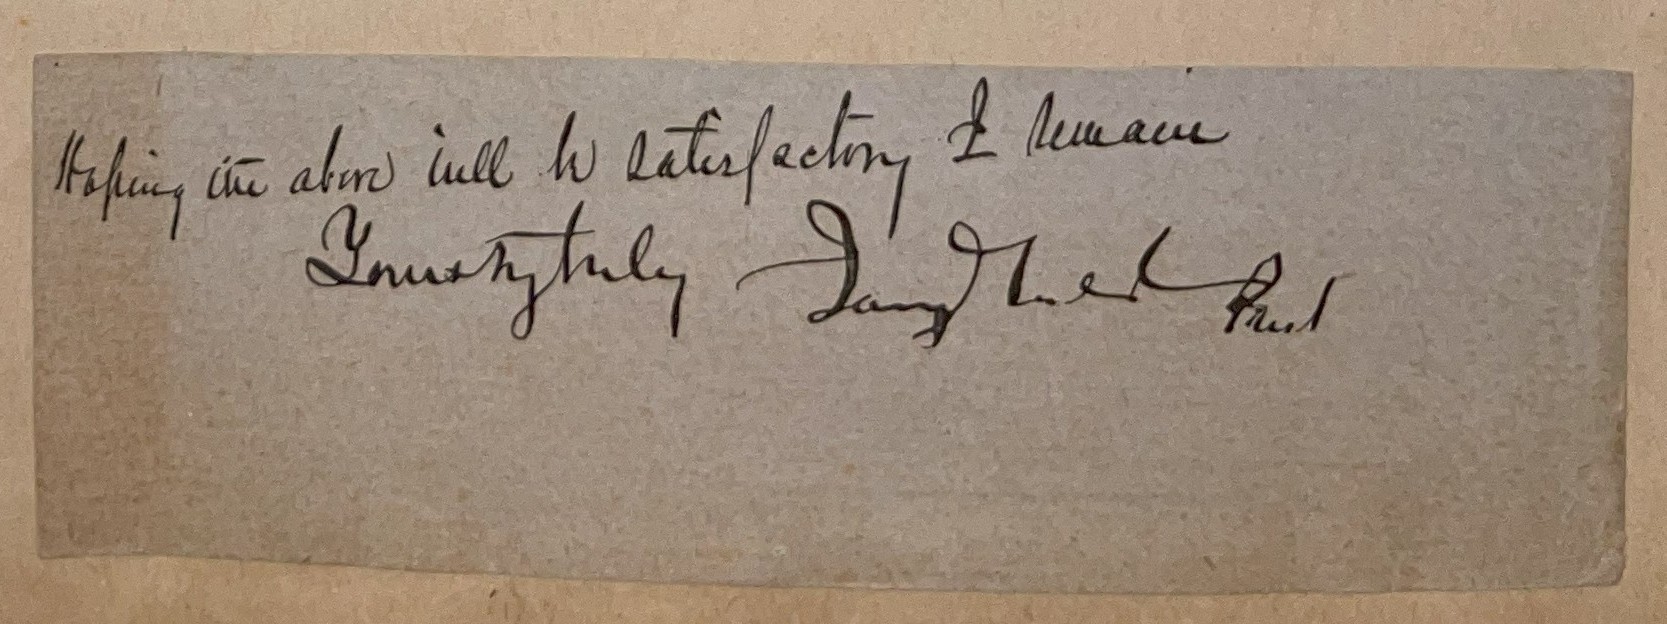 Hoping the above will be satisfactory I remain
Yours very truly
Prest